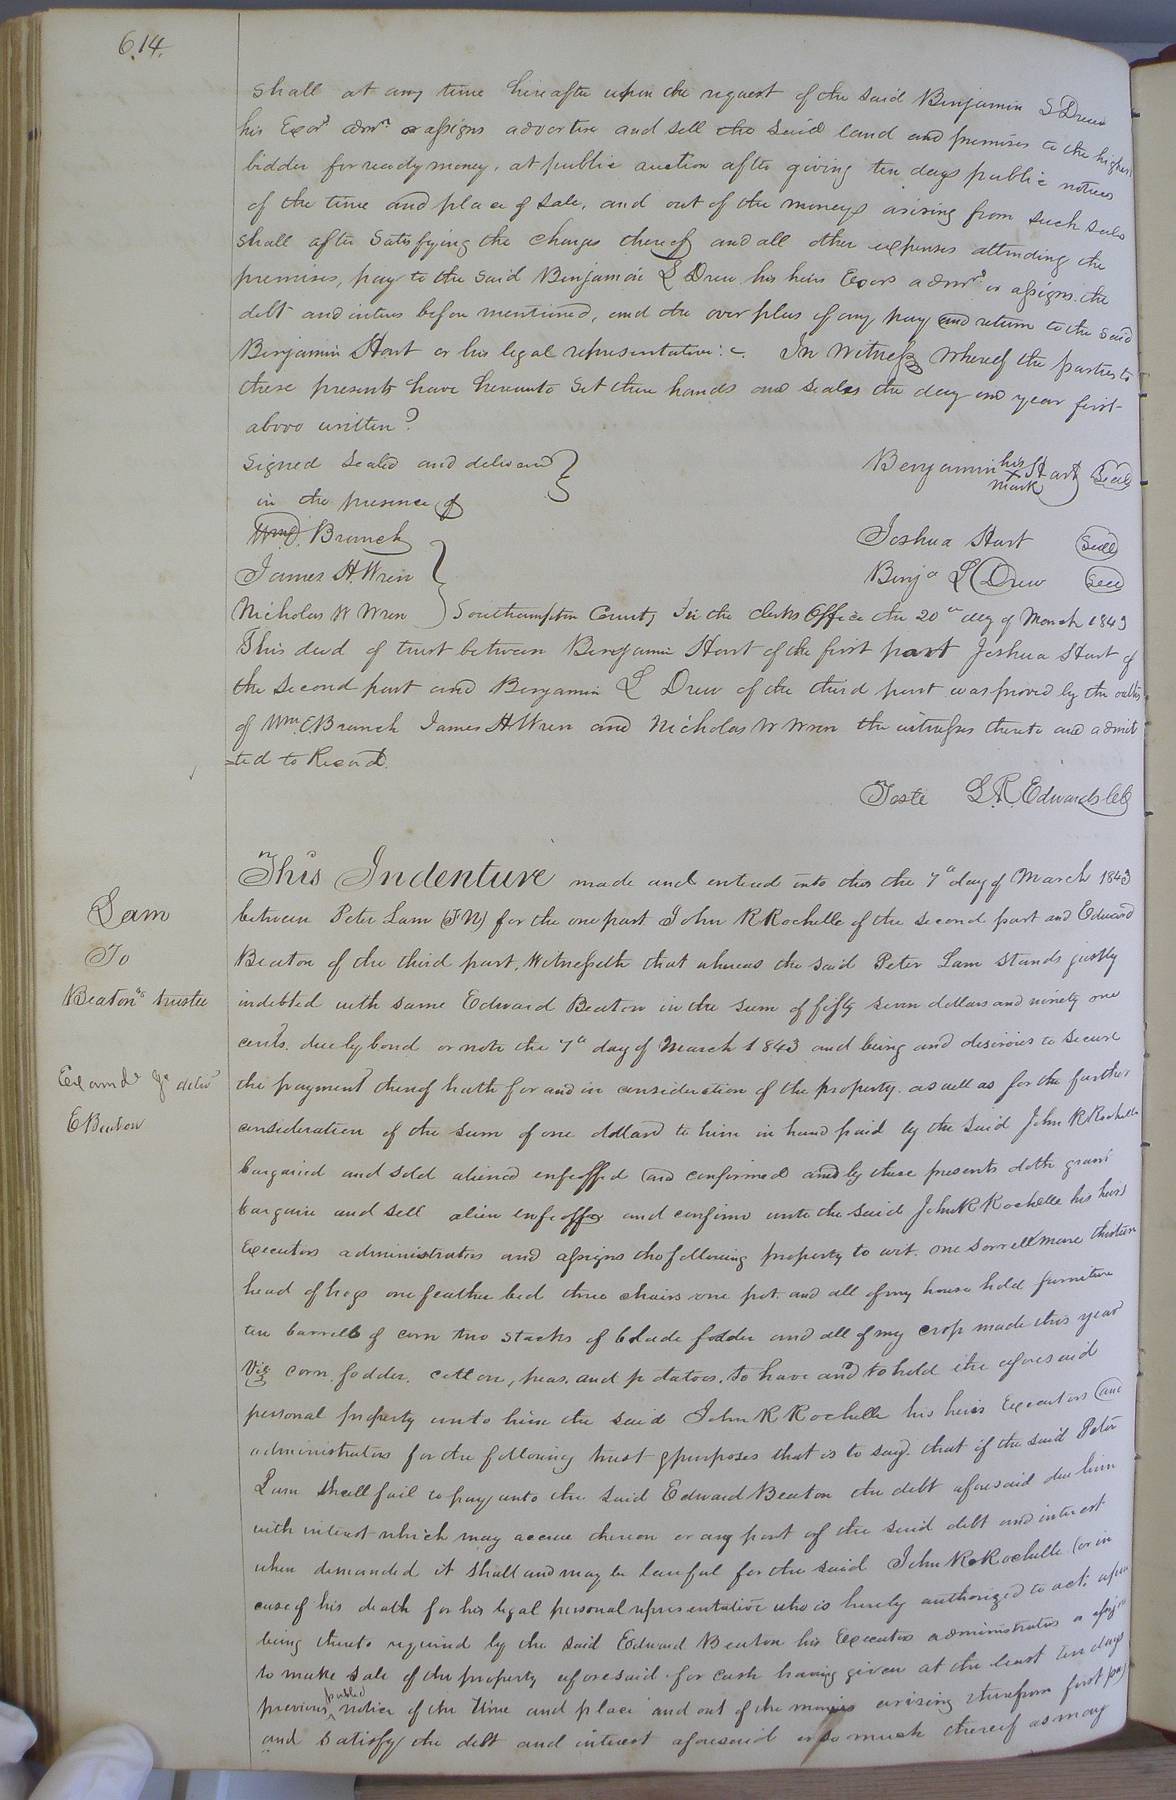 614.
shall at any time hereafter upon the request of the said Benjamin S Drew
his Exor.s admr.s or assigns advertise and sell the said land and premises to the highest
bidder for ready money, at public auction after giving ten days public notices
of the time and place of sale, and out of the moneys arising from such sales
shall after satisfying the charges thereof and all other expenses attending the
premises, pay to the said Benjamin L Drew his heirs Exors admr.s or assigns. the
debt and interes before mentioned, and the over plus if any pay and return to the said
Benjamin Hart or his legal representative: In Witness Whereof the parties to
these presents have hereunto set there hands and seales the day and year first
above written?
Signed Sealed and delivered
in the presence of
Benjamin his X mark Hart Seal
Wm C. Branch
Joshua Hart Seal
James H. Wren
Benj.a L Drew Seal
Nicholas W Wren Southampton County In the clerks Office the 20th day of March 1843
This deed of trust between Benjamin Hart of the first part Joshua Hart of
the second part and Benjamin L Drew of the third part was proved by the oaths
of Wm C Branch James H Wren and Nicholas W Wren the witnesses thereto and admit
=ted to Record.
Teste L. R. Edwards CC
This Indenture made and entered into this the 7th day of March 1843
Lam
between Peter Lam (FN) for the one part John R Rochelle of the second part and Edward
To
Beaton of the third part, Witnesseth that whereas the said Peter Lam stands justly
Beaton's trustee
indebted with same Edward Beaton in the sum of fifty seven dollars and ninety one
cents. due by bond or note the 7th day of March 1843 and being and desirous to secure
Examd & deld
the payment thereof hath for and in consideration of the property. as well as for the further
E Beaton
consideration of the sum of one dollard to him in hand paid by the said John R Rochelle
bargained and sold aliened enfeoffed and confirmed and by these presents doth grant
bargain and sell alien enfeoffe and confirm unto the said John R Rochelle his heirs
Executors administrators and assigns the following property to wit. one sorrell mare thirteen
head of hogs one feather bed three chairs one pot. and all of my house hold furniture
ten barrells of corn two stacks of blade fodder and all of my crop made this year
Viz corn, fodder, cotton, peas, and potatoes, to have and to hold the aforesaid
personal property unto him the said John R Rochelle his heirs Executors and
administrators for the following trust & purposes that is to say. that if the said Peter
Lam shall fail to pay unto the said Edward Beaton the debt aforesaid due him
with interest which may accrue thereon or any part of the said debt and interest
when demanded it shall and may be lawful for the said John R Rochelle (or in
case of his death for his legal personal representative who is hereby authorized to act. upon
being thereto required by the said Edward Beaton his Executors administrators or assigns
to make sale of the property aforesaid for cash having given at the least ten days
previous public notice of the time and place and out of the monies arising therefrom first pay
and satisfy the debt and interest aforesaid or so much thereof as may